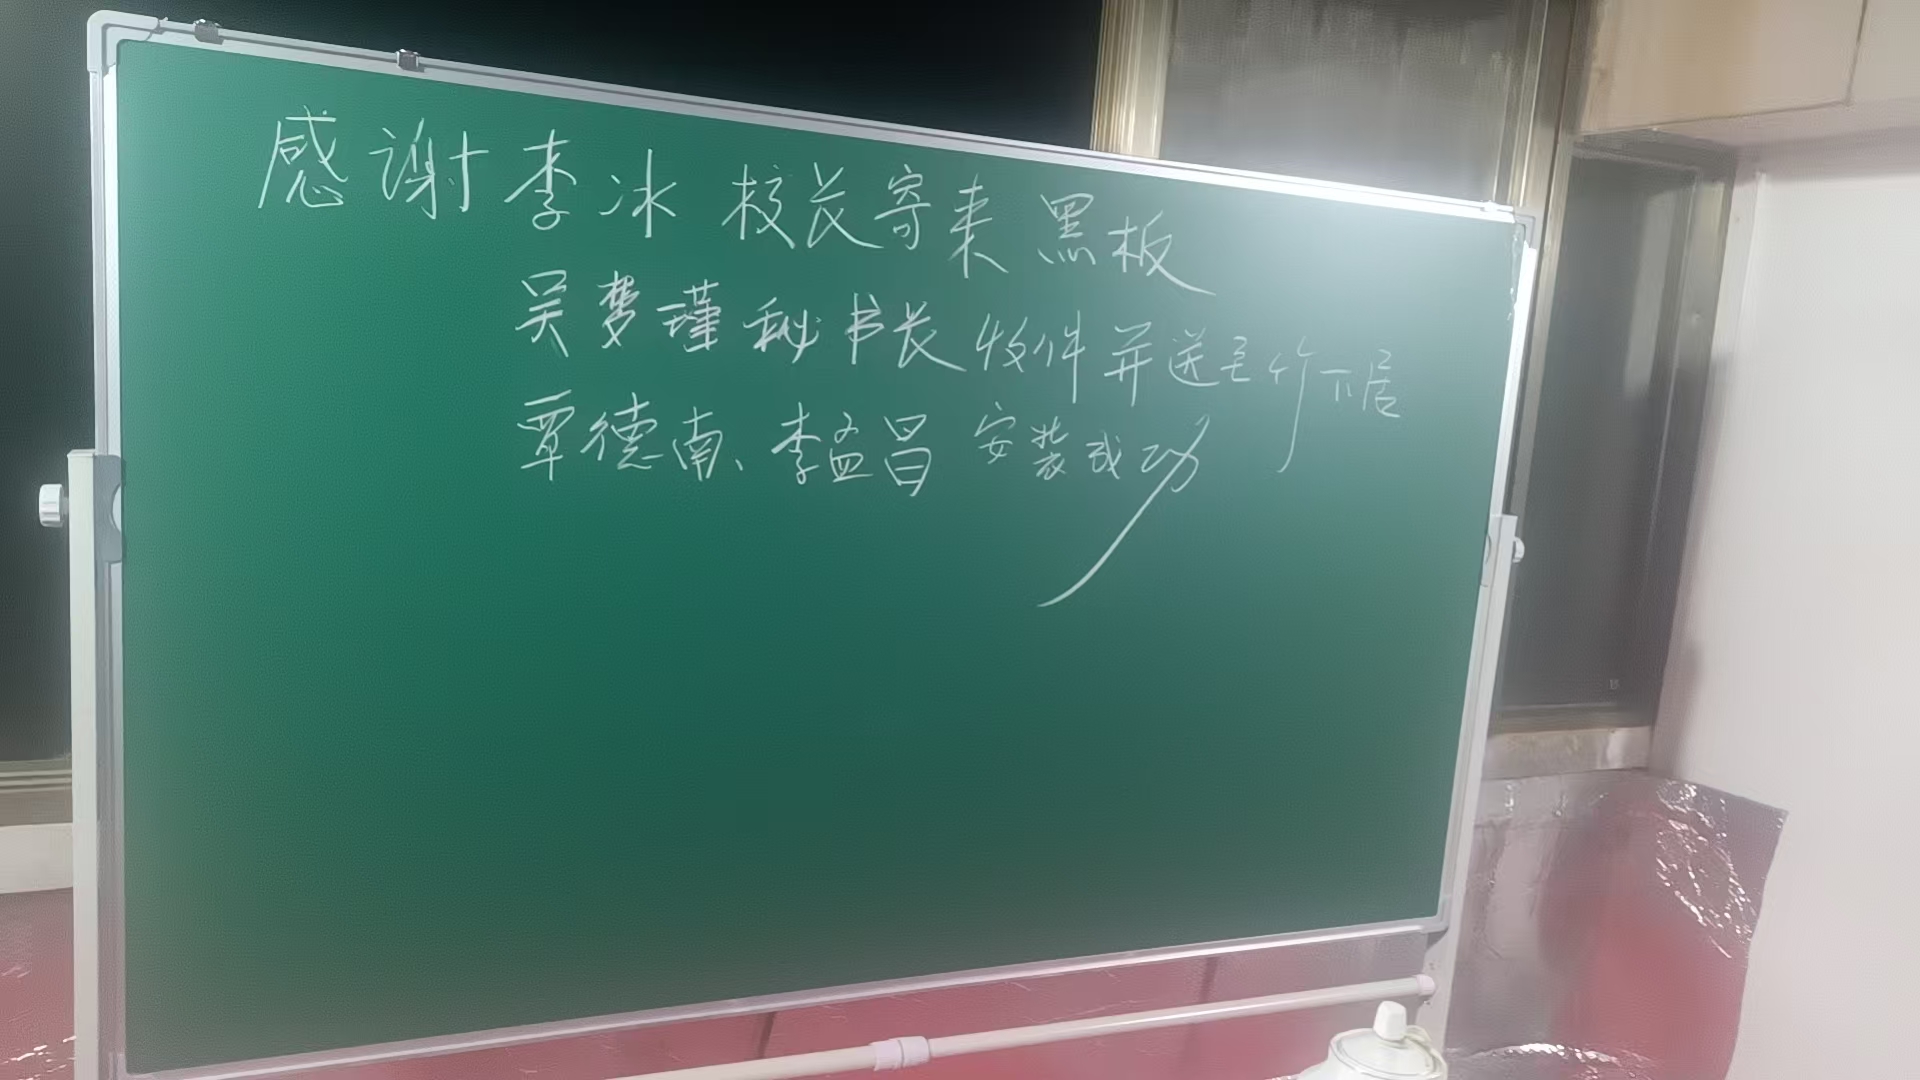 感谢李冰校长寄来黑板
吴梦瑾秘书长收件并送至竹下居
覃德南、李孟昌安装成功